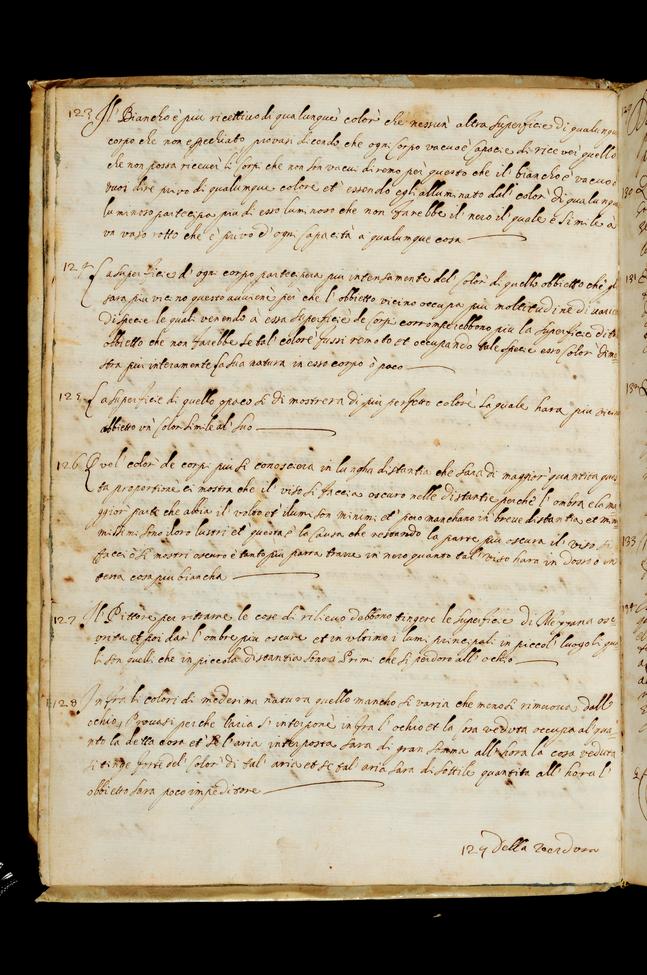 123 Il Biancho è piu ricettivo di qualunque colore che nessun altra superficie di qualunque
corpo che non e specchiato provasi dicendo che ogni corpo vacuo è capace di ricever quello
che non possa ricever li corpi che non son vacui diremo per questo che il bianco è vacuo
vuoi dire privo di qualunque colore et essendo egli alluminato dal color di qualunque
luminoso partecipa piu di esso luminoso che non farebbe il nero il quale è simile à
un vaso rotto che è privo d'ogni capacità a qualunque cosa
124 La superficie d'ogni corpo parteciperà piu intensamente del color di quello obbietto che gli
sara piu vicino questo avviene per che l'obbietto vicino occupa piu moltitudine di varietà
di specie le quali venendo à essa superficie de corpi corromperebbono piu la superficie di tale
obbietto che non farebbe se tal colore fussi remoto et occupando tale specie esso color dimo
stra piu interamente la sua natura in esso corpo opaco
125 La superficie di quello opaco si di mostrera di piu perfetto colore la quale hara piu vicino
obbietto un color simile al suo
126 Quel color de corpi piu si conoscera in lungha distantia che sara di maggior quantita ques
ta proportione ci mostra che il viso si faccia oscuro nelle distantie perche l'ombra e la ma
ggior parte che abbia il volto et i lumi son minimi et pero manchano in breve distantia et mini
missimi sono i loro lustri et questa è la causa che restando la parte piu oscura il viso si
facci è si mostri oscuro è tanto piu parra trarre in nero quanto tal viso hara in dosso o in
testa cosa piu biancha
127 Il Pittore per ritrarre le cose di rilievo debbono tingere le superficie di Mezzana oscu
rita et poi dar l'ombre piu oscure et in ultimo i lumi principali in piccol luogo li qua
li son quelli che in piccola distantia sono i Primi che si perdono all'ochio
128 Infra li colori di medesima natura quello mancho si varia che meno si rimuove dall'
ochio Provasi perche laria s'interpone infra l'ochio et la cosa veduta occupa alqua
nto la detta cosa et se l'aria interposta sara di gran somma all'hora la cosa veduta
si tinge forte del color di tal aria et se tal aria sara di sottile quantita all'hora l'
obbietto sara poco impeditore
129 Della verdura